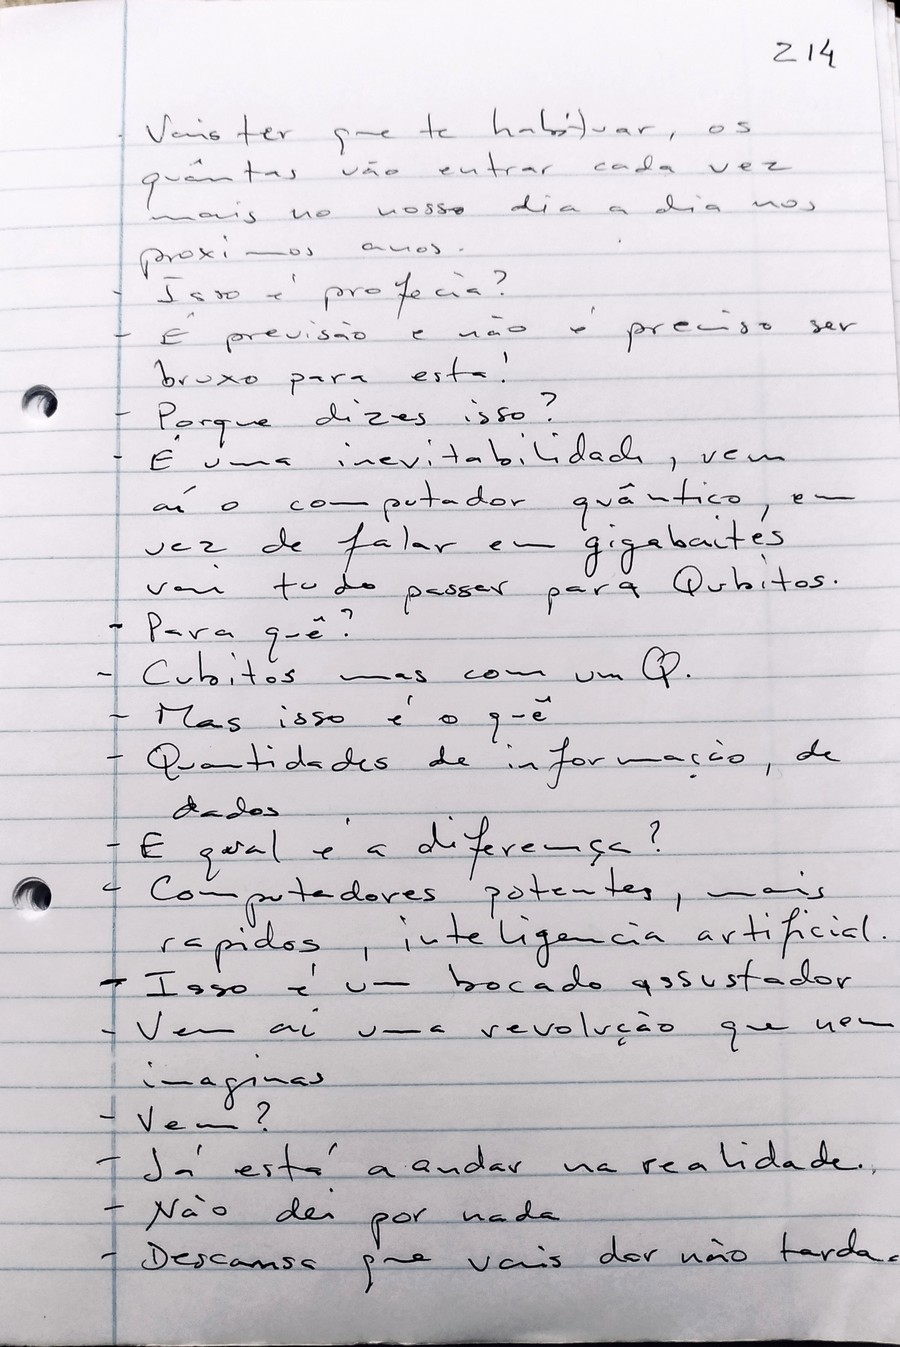 214
- Vais ter que te habituar, os
quântas vão entrar cada vez
mais no nosso dia a dia nos
proximos anos.
- Isso é profecia?
- É previsão e não é preciso ser
bruxo para esta!
- Porque dizes isso?
- É uma inevitabilidade, vem
aí o computador quântico, em
vez de falar em gigabaités
vai tudo passar para Qubitos.
- Para quê?
- Cubitos mas com um Q.
- Mas isso é o quê
- Quantidades de informação, de
dados
- E qual é a diferença?
- Computadores potentes, mais
rapidos, inteligencia artificial.
- Isso é um bocado assustador
- Vem aí uma revolução que nem
imaginas
- Vem?
- Já está a andar na realidade.
- Não dei por nada
- Descansa que vais dar não tarda.